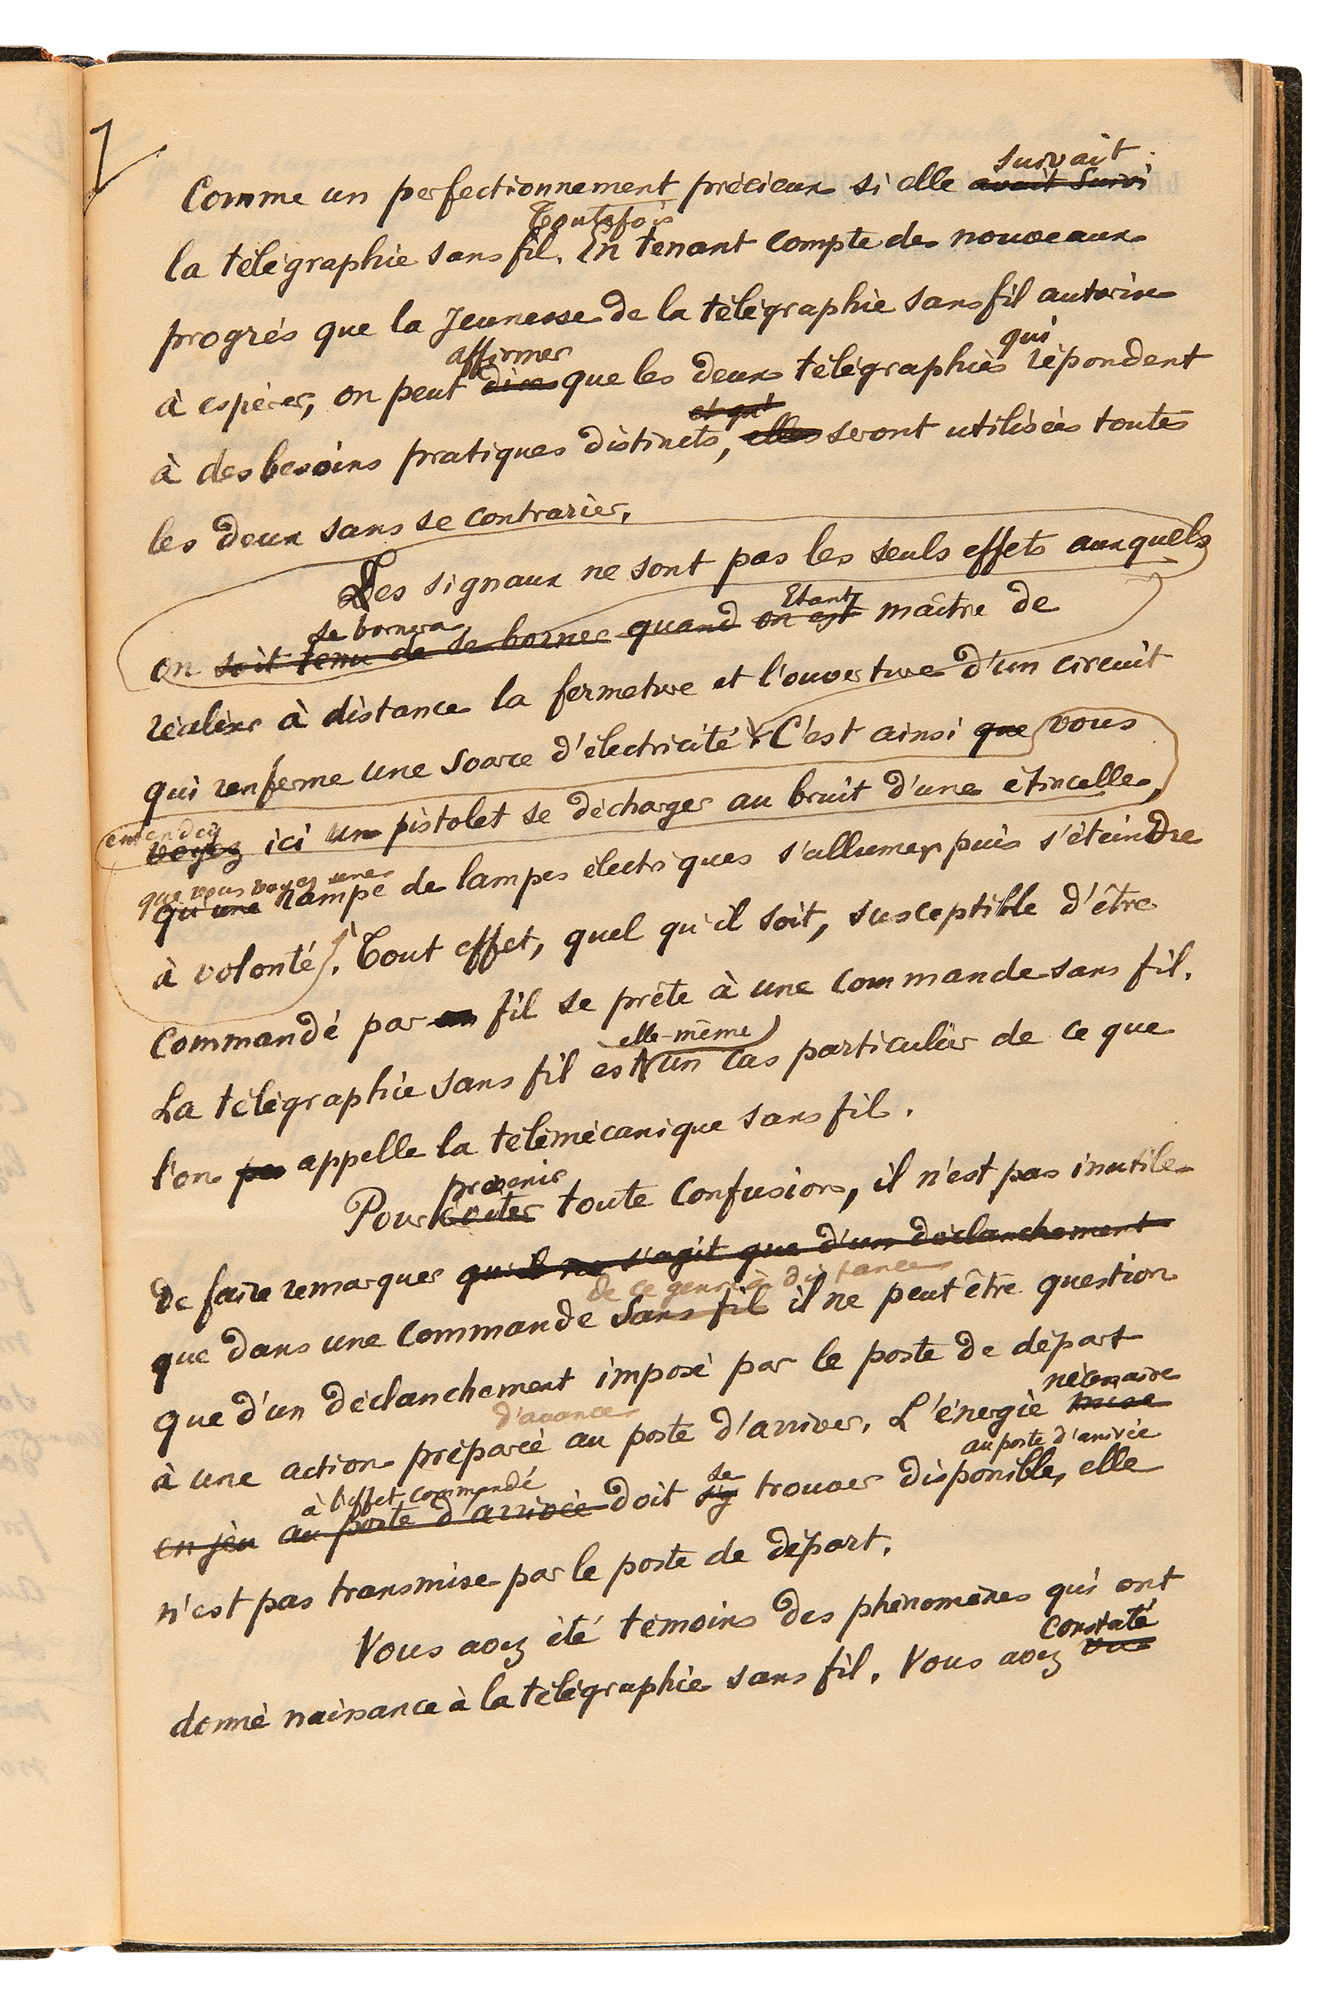 7
suivait
Comme un perfectionnement précieux si elle avait suivi
Toutefois
la télégraphie sans fil. En tenant compte des nouveaux
progrès que la Jeunesse de la télégraphie sans fil autorise
affirmer qui
à espérer, on peut dire que les deux télégraphies répondent
et qu'
à des besoins pratiques distincts, elles seront utilisées toutes
les deux sans se contrarier.
Les signaux ne sont pas les seuls effets auxquels
se bornera Etant
on soit tenu de se borner quand on est maître de
réaliser à distance la fermeture et l'ouverture d'un circuit
qui renferme une source d'électricité. C'est ainsi que vous
entendez
voyez ici un pistolet se décharger au bruit d'une étincelle,
que vous voyez une
qu'une rampe de lampes électriques s'allumer puis s'éteindre
à volonté. Tout effet, quel qu'il soit, susceptible d'être
commandé par un fil se prête à une commande sans fil.
elle-même
La télégraphie sans fil est un cas particulier de ce que
l'on appelle la télémécanique sans fil.
prévenir
Pour éviter toute confusion, il n'est pas inutile
de faire remarquer qu'il ne s'agit que d'un déclanchement
de ce genre à distance
que dans une commande sans fil il ne peut être question
que d'un déclanchement imposé par le poste de départ
d'avance nécessaire
à une action préparée au poste d'arriver. L'énergie mise
à l'effet commandé au poste d'arrivée
en jeu au poste d'arrivée doit se trouver disponible, elle
n'est pas transmise par le poste de départ.
Vous avez été témoins des phénomènes qui ont
constaté
donné naissance à la télégraphie sans fil. Vous avez vu